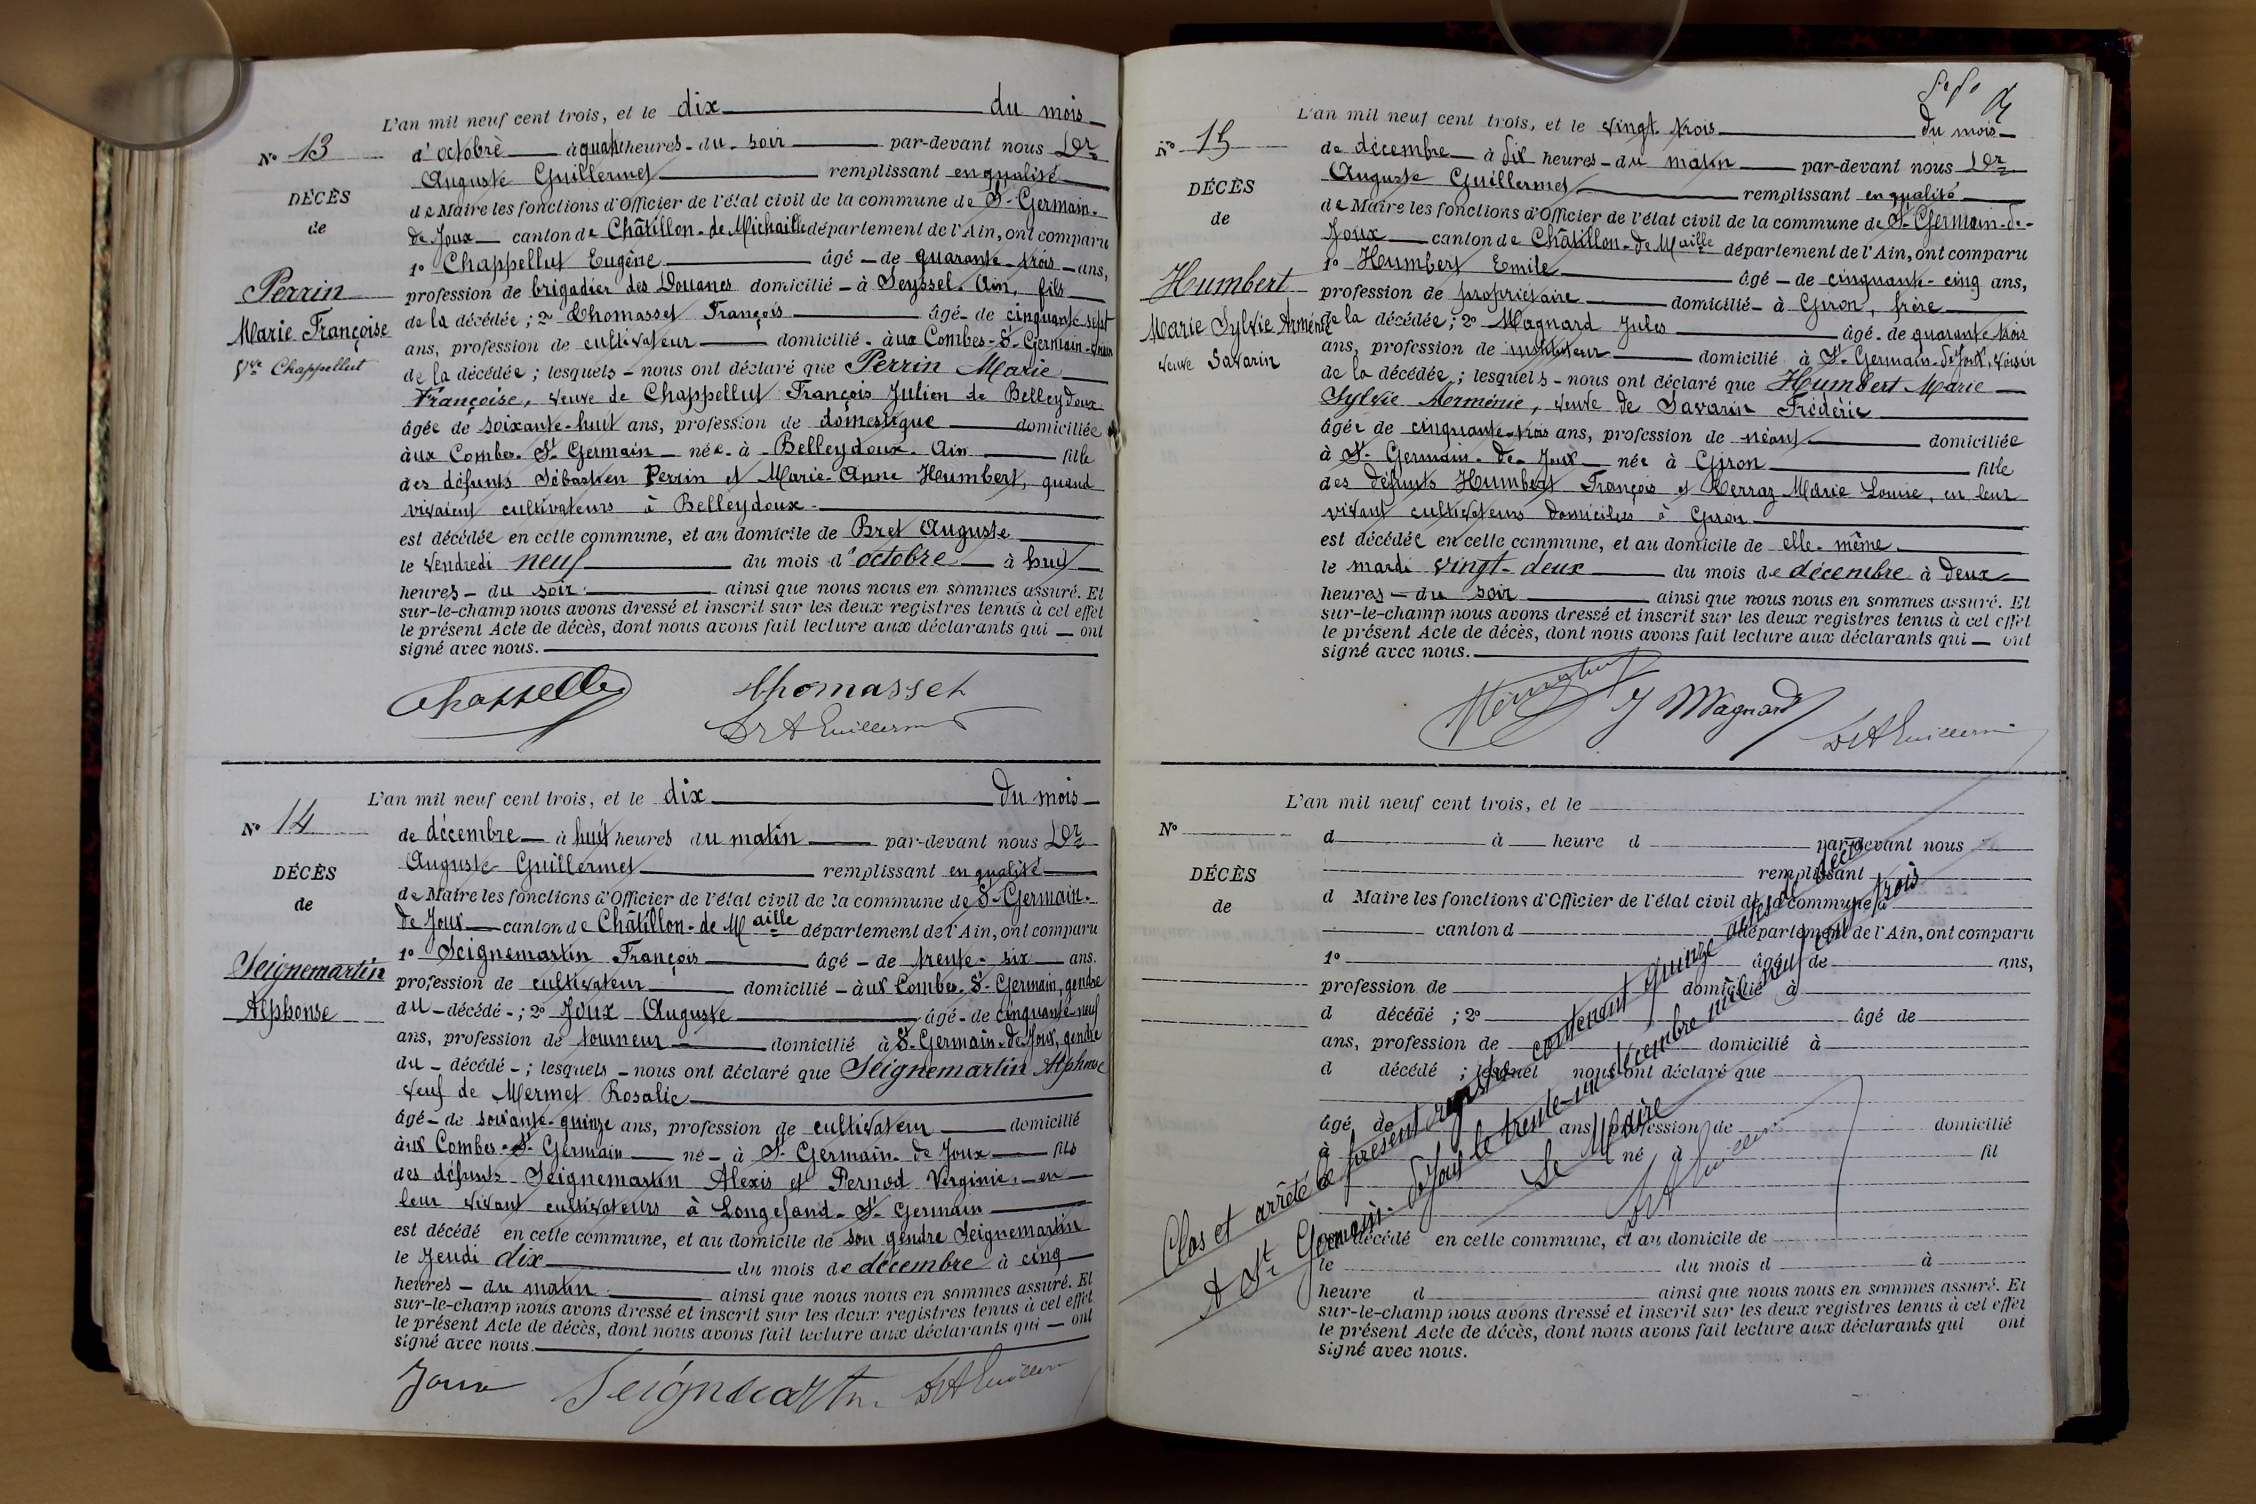 L'an mil neuf cent trois, et le dix du mois
N° 13
d'octobre à quatre heures du soir par-devant nous Dr
Auguste Guillermet remplissant en qualité
DÉCÈS
de Maire les fonctions d'Officier de l'état civil de la commune de St Germain-
de
de Joux canton de Châtillon-de-Michaille département de l'Ain, ont comparu
1° Chappellut Eugène âgé de quarante-trois ans,
Perrin
profession de brigadier des Douanes domicilié à Seyssel, Ain, fils
Marie Françoise
de la décédée ; 2° Thomasset François âgé de cinquante-sept
ans, profession de cultivateur domicilié aux Combes-St Germain-voisin
Vve Chappellut
de la décédée ; lesquels nous ont déclaré que Perrin Marie
Françoise, veuve de Chappellut François Julien de Belleydoux
âgée de soixante-huit ans, profession de domestique domiciliée
aux Combes-St Germain née à Belleydoux-Ain fille
des défunts Sébastien Perrin et Marie-Anne Humbert, quand
vivaient cultivateurs à Belleydoux.
est décédée en cette commune, et au domicile de Bret Auguste
le vendredi neuf du mois d'octobre à huit
heures du soir ainsi que nous nous en sommes assuré. Et
sur-le-champ nous avons dressé et inscrit sur les deux registres tenus à cet effet
le présent Acte de décès, dont nous avons fait lecture aux déclarants qui ont
signé avec nous.
Chappellut Thomasset
Dr A Guillermet
L'an mil neuf cent trois, et le dix du mois
N° 14
de décembre à huit heures du matin par-devant nous Dr
Auguste Guillermet remplissant en qualité
DÉCÈS
de Maire les fonctions d'Officier de l'état civil de la commune de St Germain-
de
de Joux canton de Châtillon-de-Maille département de l'Ain, ont comparu
1° Seignemartin François âgé de trente-six ans.
Seignemartin
profession de cultivateur domicilié aux Combes-St Germain, gendre
Alphonse
du décédé ; 2° Joux Auguste âgé de cinquante-neuf
ans, profession de tourneur domicilié à St Germain-de Joux, gendre
du décédé ; lesquels nous ont déclaré que Seignemartin Alphonse
veuf de Mermet Rosalie
âgé de soixante-quinze ans, profession de cultivateur domicilié
aux Combes-St Germain né à St Germain-de Joux fils
des défunts Seignemartin Alexis et Pernod Virginie, en
leur vivant cultivateurs à Longefand-St Germain
est décédé en cette commune, et au domicile de son gendre Seignemartin
le Jeudi dix du mois de décembre à cinq
heures du matin ainsi que nous nous en sommes assuré. Et
sur-le-champ nous avons dressé et inscrit sur les deux registres tenus à cet effet
le présent Acte de décès, dont nous avons fait lecture aux déclarants qui ont
signé avec nous.
Joux Seignemartin Dr A Guillermet
L'an mil neuf cent trois, et le vingt-trois du mois
N° 15
de décembre à dix heures du matin par-devant nous Dr
Auguste Guillermet remplissant en qualité
DÉCÈS
de Maire les fonctions d'Officier de l'état civil de la commune de St Germain-de-
de
Joux canton de Châtillon-de-Maille département de l'Ain, ont comparu
1° Humbert Emile âgé de cinquante-cinq ans,
Humbert
profession de propriétaire domicilié à Giron, frère
Marie Sylvie Arménie
de la décédée ; 2° Magnard Jules âgé de quarante-trois
ans, profession de instituteur domicilié à St Germain-de Joux, voisin
veuve Savarin
de la décédée ; lesquels nous ont déclaré que Humbert Marie
Sylvie Arménie, veuve de Savarin Frédéric
âgée de cinquante-trois ans, profession de néant domiciliée
à St Germain-de-Joux née à Giron fille
des défunts Humbert François et Perraz Marie Louise, en leur
vivant cultivateurs domiciliés à Giron
est décédée en cette commune, et au domicile de elle-même
le mardi vingt-deux du mois de décembre à deux
heures du soir ainsi que nous nous en sommes assuré. Et
sur-le-champ nous avons dressé et inscrit sur les deux registres tenus à cet effet
le présent Acte de décès, dont nous avons fait lecture aux déclarants qui ont
signé avec nous.
Humbert J Magnard Dr A Guillermet
L'an mil neuf cent trois, et le
N°
d à heure d par-devant nous
remplissant
DÉCÈS
d Maire les fonctions d'Officier de l'état civil de la commune d
de
canton d département de l'Ain, ont comparu
1° âgé de ans,
profession de domicilié à
d décédé ; 2° âgé de
ans, profession de domicilié à
d décédé ; lesquel nous ont déclaré que
âgé de ans, profession de domicilié
à né à fil
est décédé en cette commune, et au domicile de
le du mois d à
heure d ainsi que nous nous en sommes assuré. Et
sur-le-champ nous avons dressé et inscrit sur les deux registres tenus à cet effet
le présent Acte de décès, dont nous avons fait lecture aux déclarants qui ont
signé avec nous.
Clos et arrêté le présent registre contenant quinze actes de décès
A St Germain-de Joux le trente-un décembre mil neuf cent trois
Le Maire
Dr A Guillermet